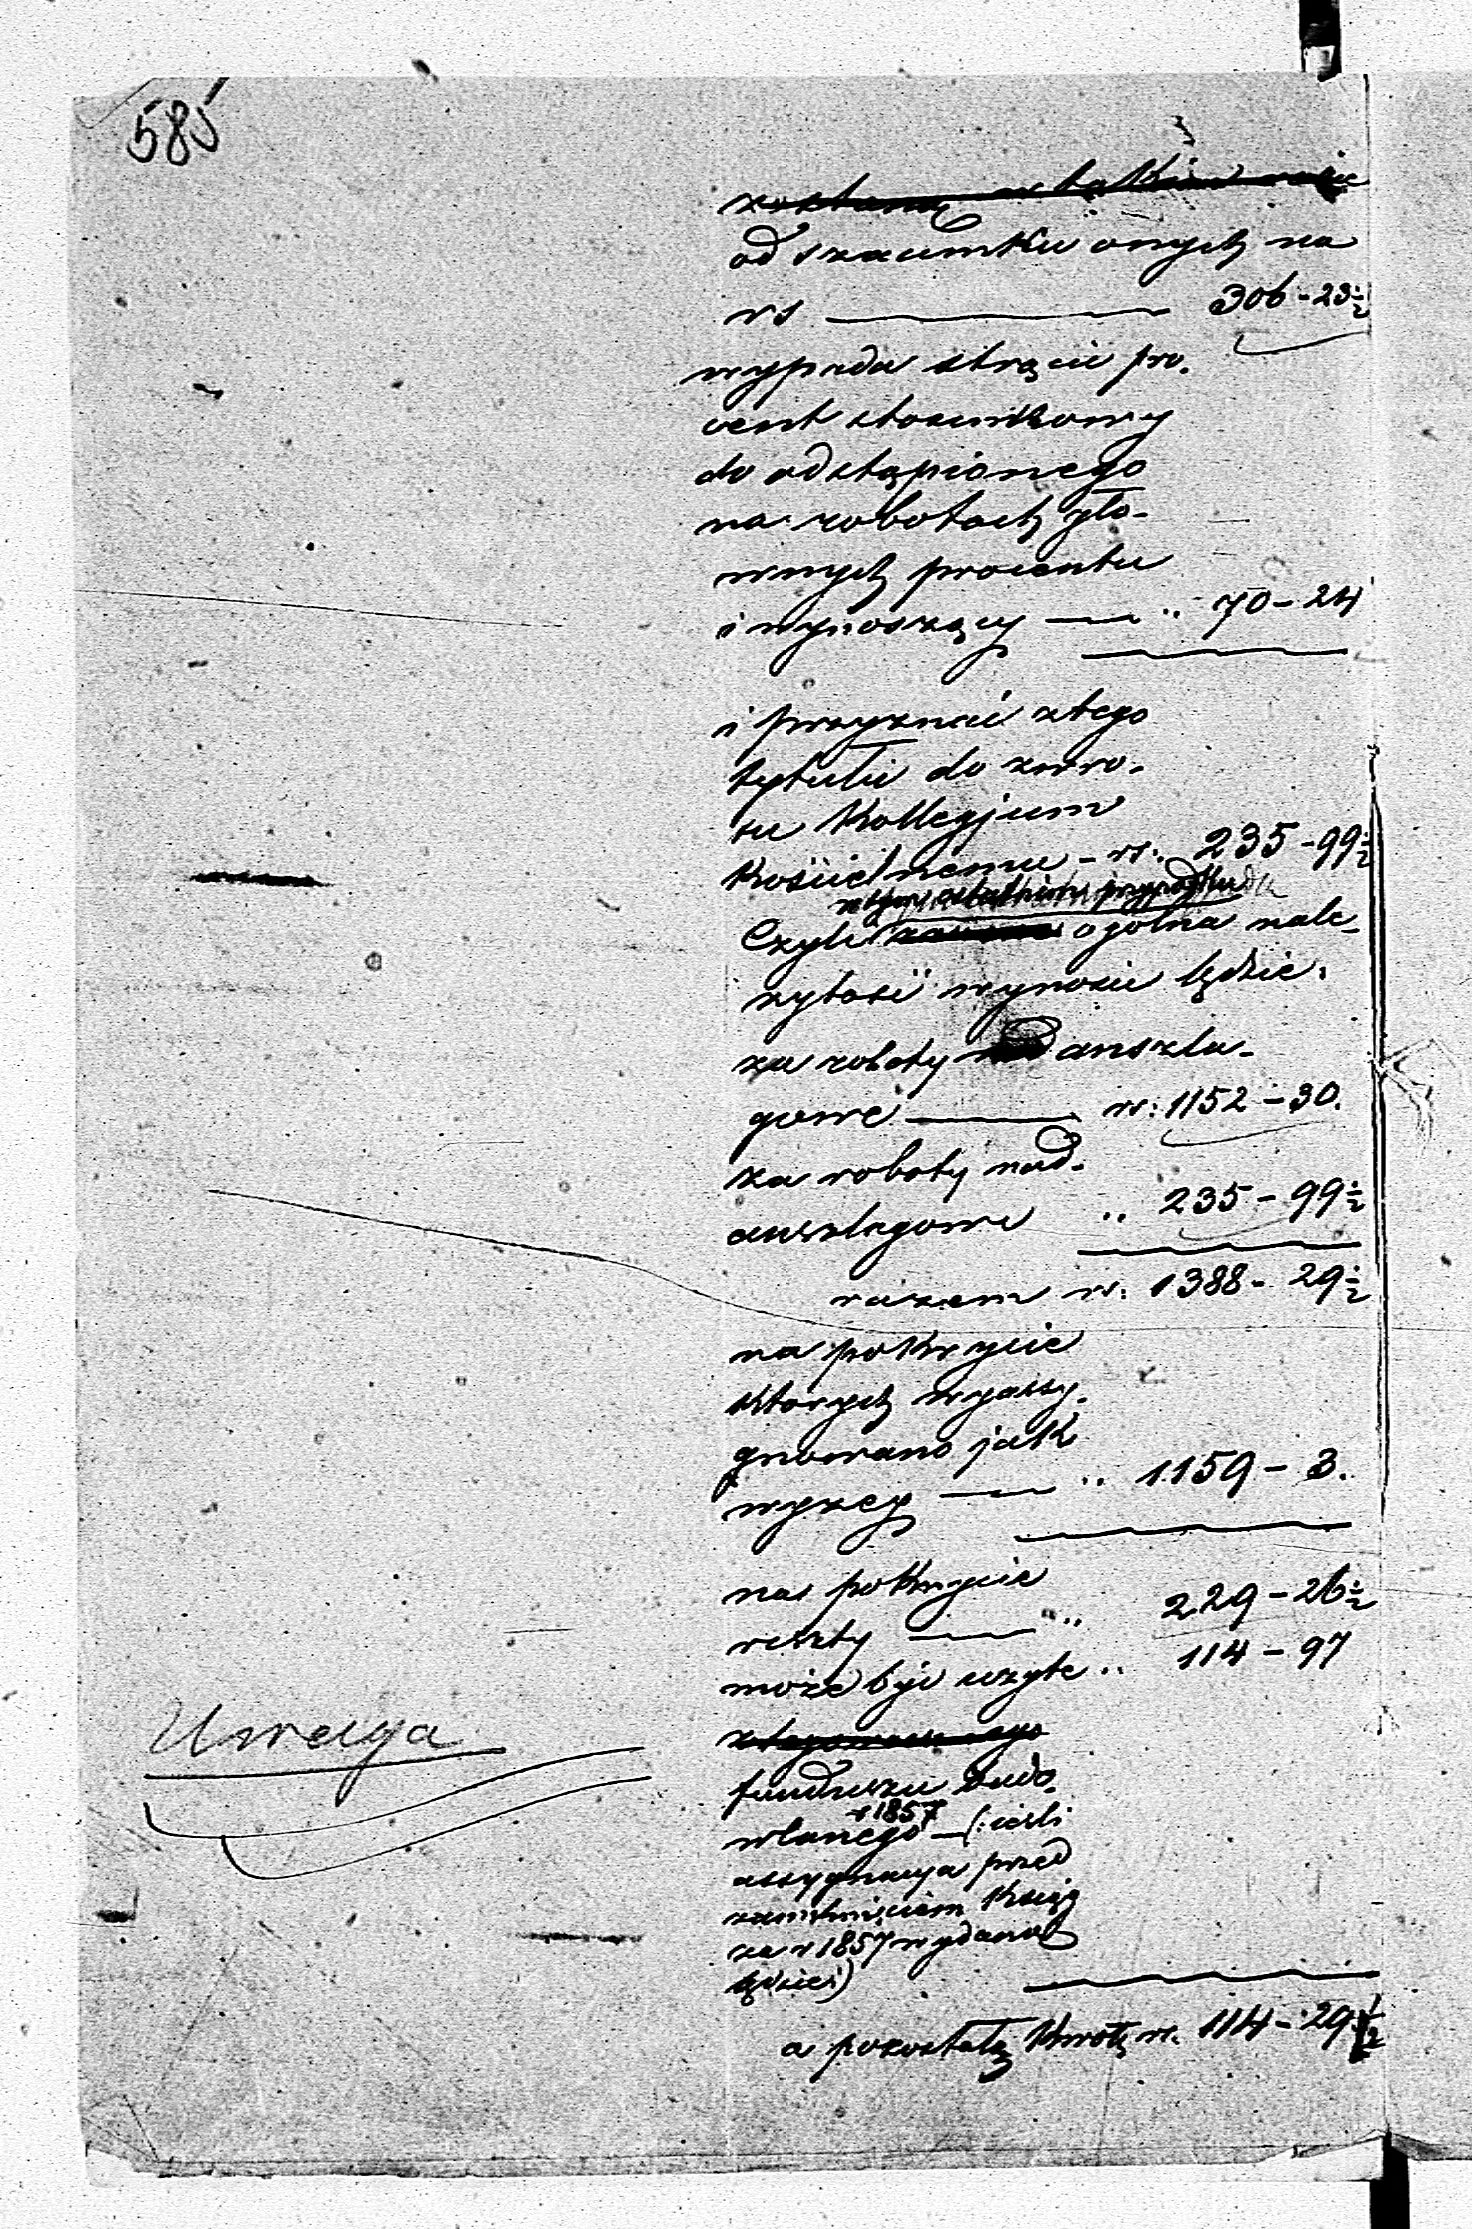 585
zostaną w takim razie
od szacunku onych na
rs — 306 - 23½
wypada strącić pro-
cent stosunkowy
do odstąpionego
na robotach głó-
wnych procentu
i wynoszący — „ 70 - 24
i przyznać z tego
tytułu do zwro-
tu Kollegjum
Kościelnemu - rs. 235 - 99½
w tym ostatnim przypadku
Czyli ogólna nale-
żytość wynosić będzie:
za roboty anszla-
gowe — rs: 1152 - 30.
za roboty nad-
anszlagowe „ 235 - 99½
razem rs: 1388 - 29½
na pokrycie
których wyassy-
gnowano jak
wyżey — „ 1159 - 3.
na pokrycie
reszty — „ 229 - 26½
może być użyte „ 114 - 97
Uwaga
funduszu budo-
r 1857
wlanego — (: ieśli
assygnacya przed
zamknięciem Ksiąg
za r 1857 wydaną
będzie:)
a pozostałą Kwotę rs. 114 - 29½